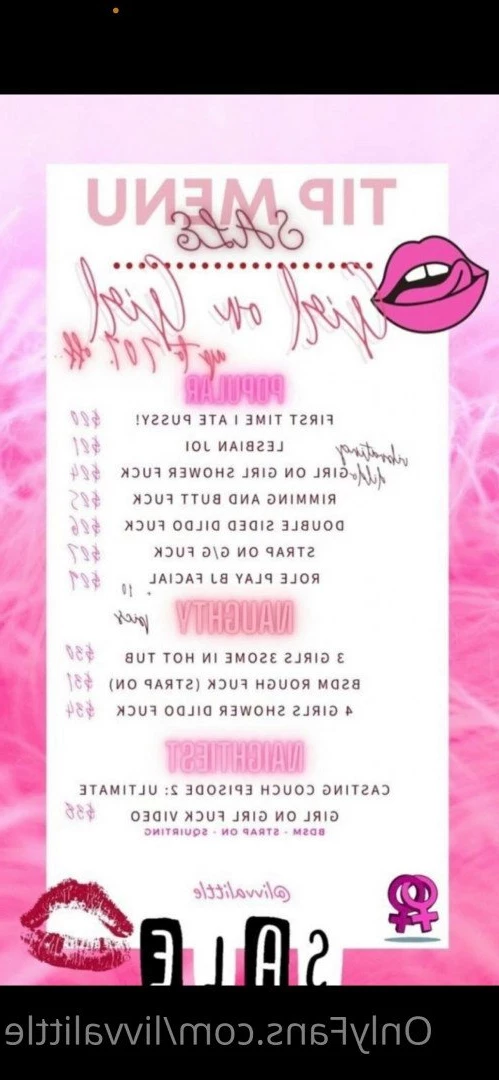 TIP MENU
SALE
Girl on Girl
up to 70% off
POPULAR
FIRST TIME I ATE PUSSY! $20
LESBIAN JOI $21
vibrating dildo
GIRL ON GIRL SHOWER FUCK $24
RIMMING AND BUTT FUCK $25
DOUBLE SIDED DILDO FUCK $26
STRAP ON G/G FUCK $27
ROLE PLAY BJ FACIAL
+ 10 pics
NAUGHTY
3 GIRLS E3SOME IN HOT TUB $30
BSDM ROUGH FUCK (STRAP ON) $31
4 GIRLS SHOWER DILDO FUCK $34
NAIGHTIEST
CASTING COUCH EPISODE 2: ULTIMATE
GIRL ON GIRL FUCK VIDEO
BDSM - STRAP ON - SQUIRTING
@livvalittle
SALE
OnlyFans.com/livvalittle